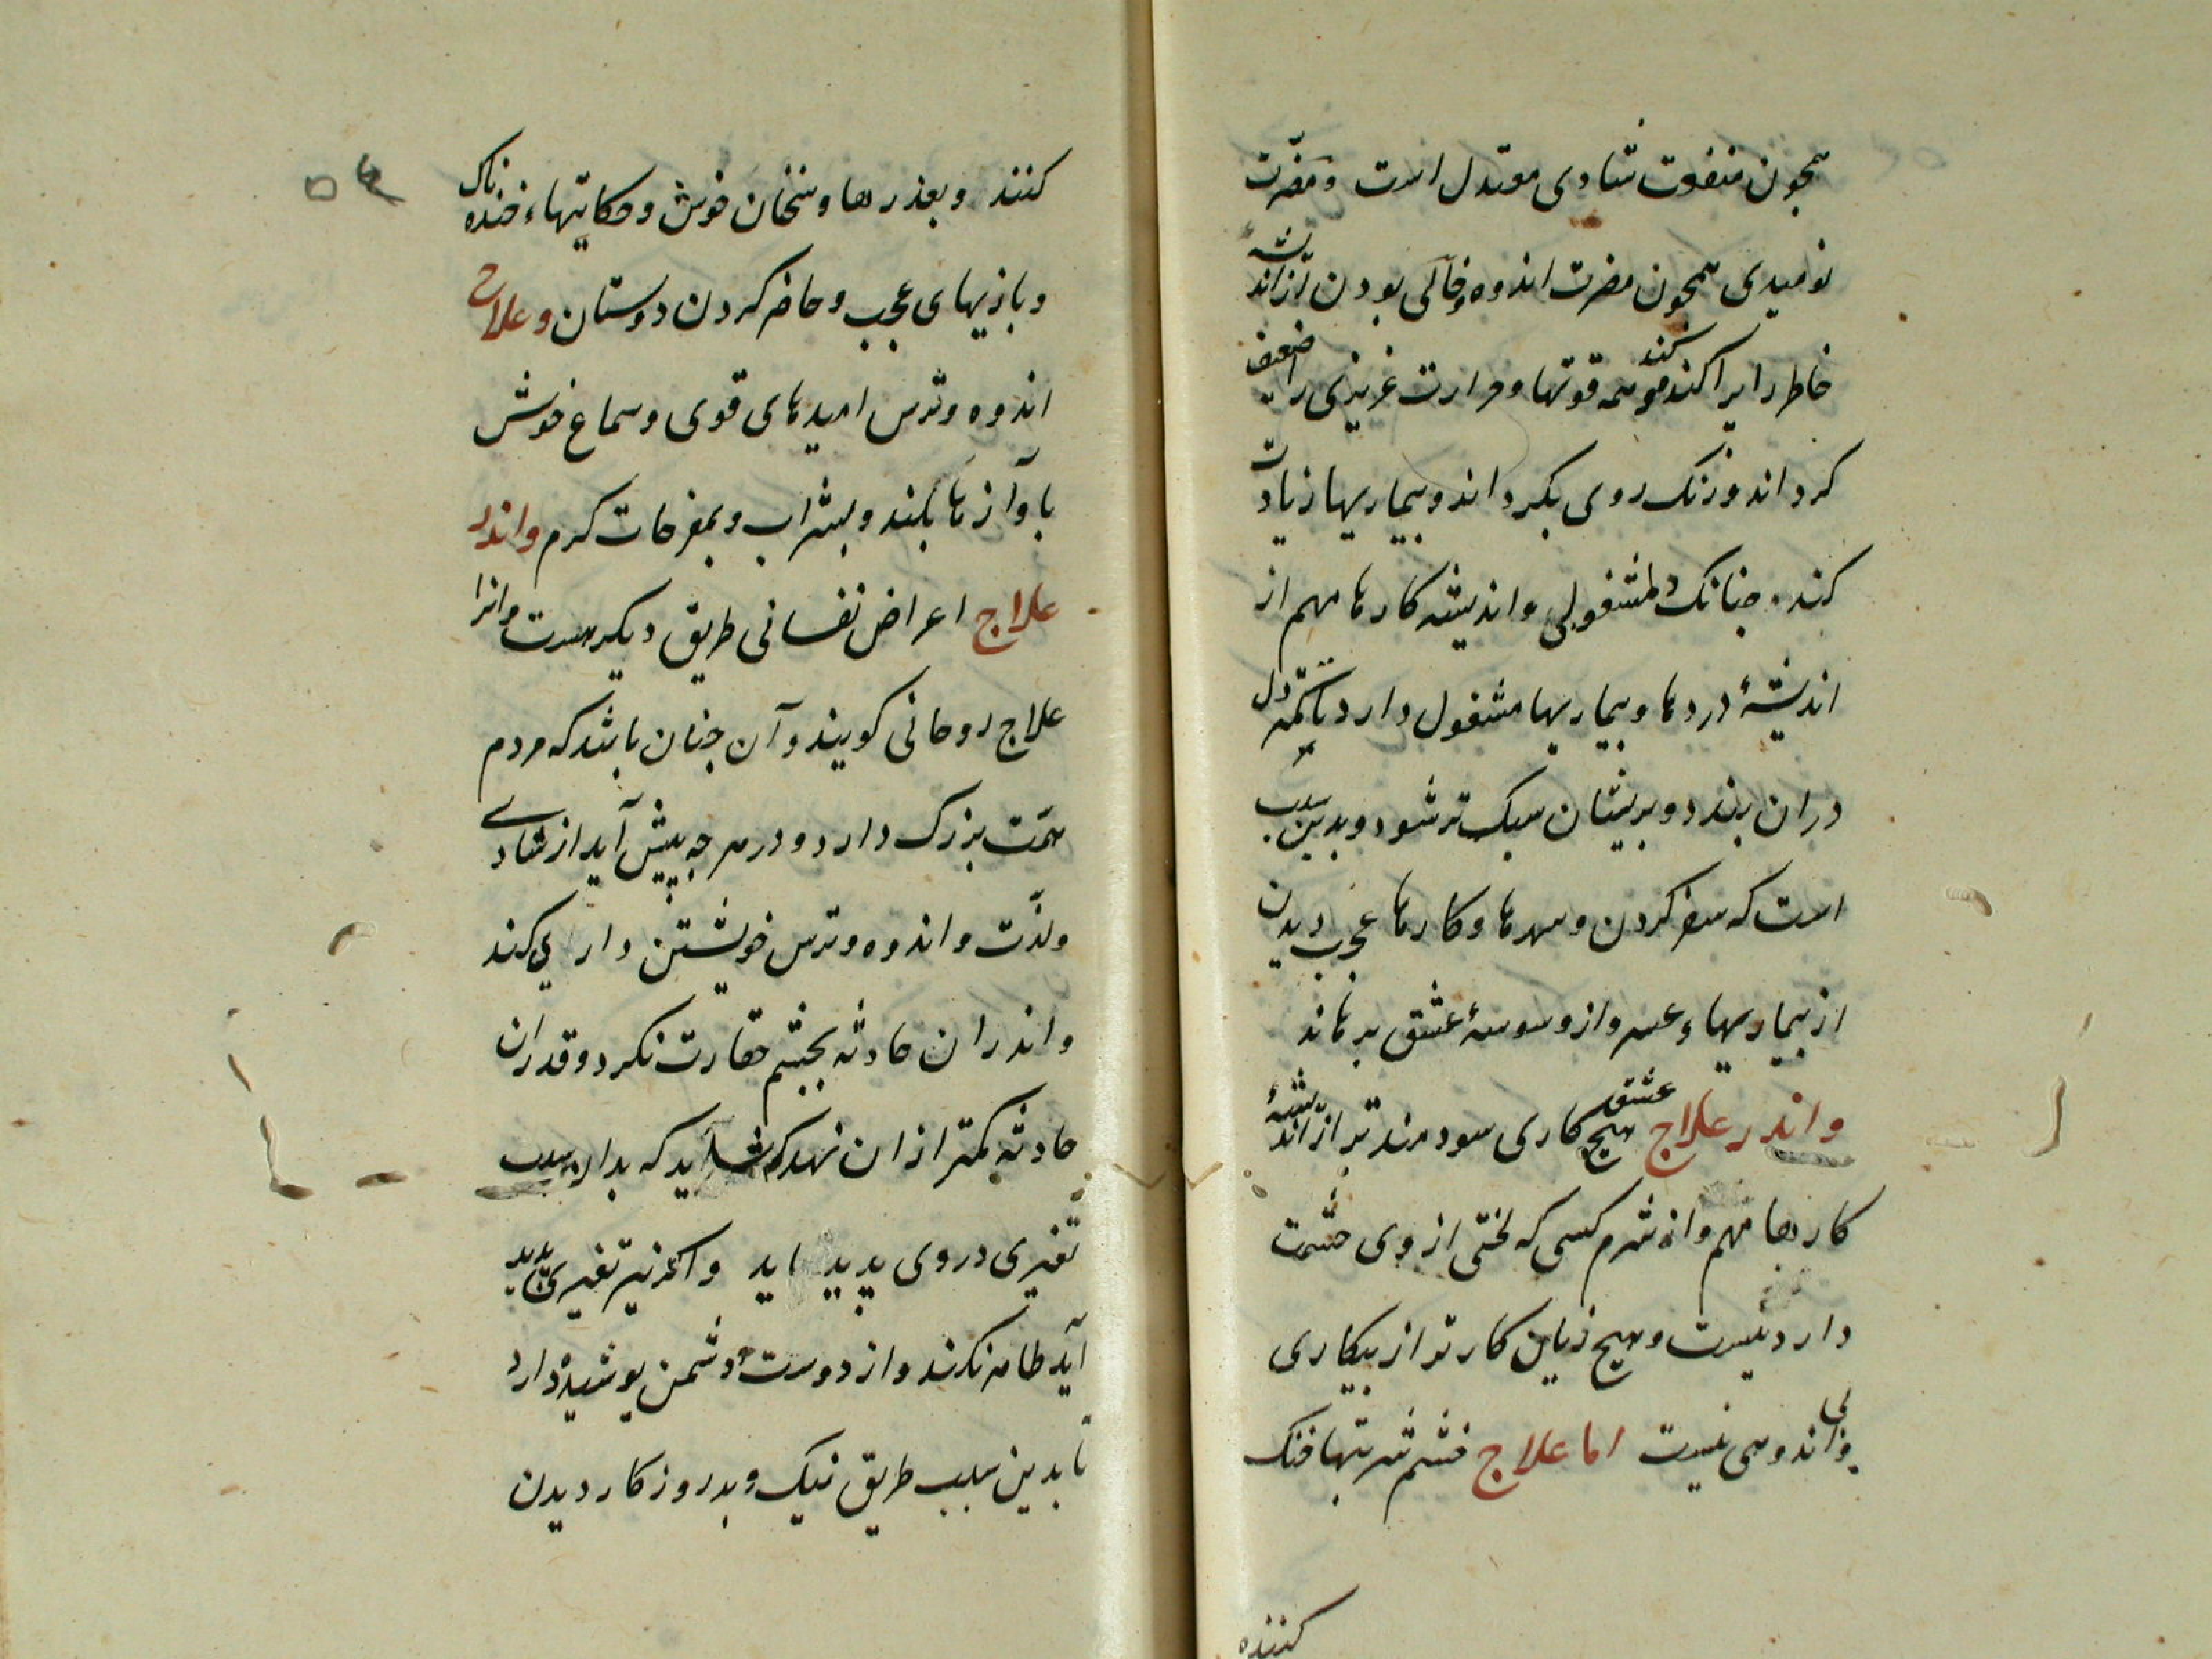 همچون منفعت شادی معتدل است و مضرّت
نومیدی همچون مضرت اندوه و خالی بودن از اندیشهٔ
خاطر را پراکنده کند و همه قوتها و حرارت غریزی را ضعیف
کرداند و رنک روی بکرداند و بیماریها زیادت
کند. جنانک دلمشغولی و اندیشه کارها مهم از
اندیشهٔ دردها و بیماریها مشغول دارد تا همه دل
دران بندد و بریشان سبک تر شود و بدین سبب
است که سفر کردن و شهرها و کارها عجب دیدن
از بیماریهاء عسر و از وسوسهٔ عشق برهاند
و اندر علاج عشق هیچ کاری سودمندتر از اندیشهٔ
کارها مهم و از شرم کسی که لختی از وی حشمت
دارد نیست و هیج زیان کارتر از بیکاری
و بی اندوهی نیست اما علاج خشم شربتها خنک
کننده
۵۴
کنند و بعذرها و سخنان خوش و حکایتهاء خنده ناک
و بازیهای عجب و حاضر کردن دوستان و علاج
اندوه و ترس امیدهای قوی و سماع خوش
بآوازها بلند و بشراب و بمفرحات کرم و اندر
علاج اعراض نفسانی طریق دیکر هست و انرا
علاج روحانی کویند و آن جنان باشد که مردم
همّت بزرک دارد و در هر جه پیش آید از شادی
و لذّت و اندوه و ترس خویشتن داری کند
و اندران حادثه بجشم حقارت نکرد و قدر ان
حادثه کمتر ازان نهد که شاید که بدان سبب
تغیری در وی پدید اید و اکر نیز تغیری پدید
آید ظاهر نکند و از دوست و دشمن پوشیده دارد
تا بدین سبب طریق نیک و بد روزکار دیدن